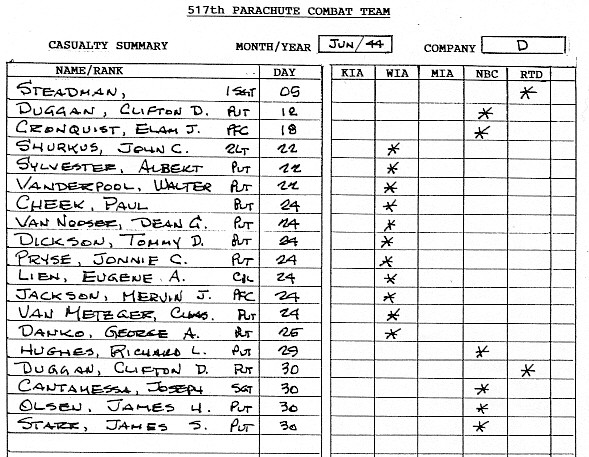 517th PARACHUTE COMBAT TEAM
CASUALTY SUMMARY MONTH/YEAR JUN/44 COMPANY D
NAME/RANK DAY KIA WIA MIA NBC RTD
STEADMAN, 1SGT 05 *
DUGGAN, CLIFTON D. PVT 12 *
CRONQUIST, ELAM J. PFC 18 *
SHURKUS, JOHN C. 2LT 22 *
SYLVESTER, ALBERT PVT 22 *
VANDERPOOL, WALTER PVT 22 *
CHEEK, PAUL PVT 24 *
VAN NOOSER, DEAN G. PVT 24 *
DICKSON, TOMMY D. PVT 24 *
PRYSE, JONNIE C. PVT 24 *
LIEN, EUGENE A. CPL 24 *
JACKSON, MERVIN J. PFC 24 *
VAN METEGER, CHAS. PVT 24 *
DANKO, GEORGE A. PVT 25 *
HUGHES, RICHARD L. PVT 29 *
DUGGAN, CLIFTON D. PVT 30 *
CANTAMESSA, JOSEPH SGT 30 *
OLSEN, JAMES H. PVT 30 *
STARR, JAMES S. PVT 30 *